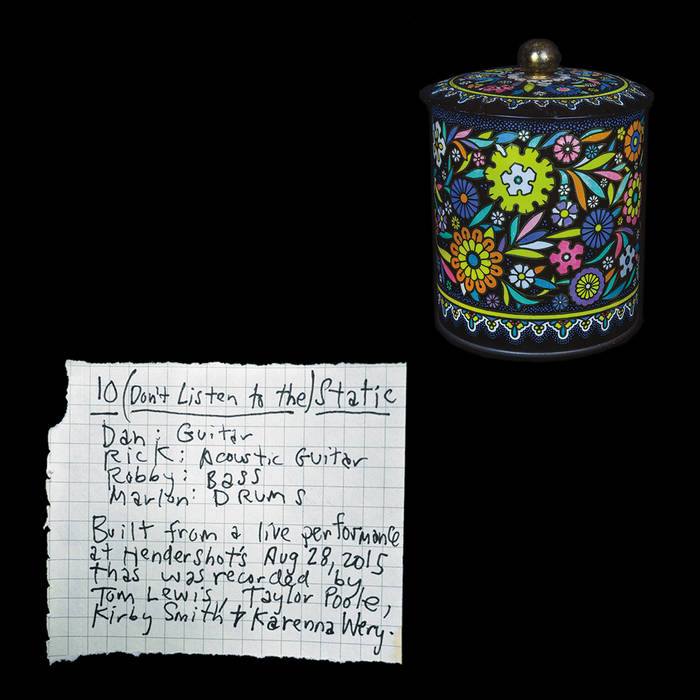 10 (Don't Listen to the) Static
Dan: Guitar
Rick: Acoustic Guitar
Robby: Bass
Marlon: DRUMS
Built from a live performance
at Hendershot's Aug 28, 2015
thas was recorded by
Tom Lewis, Taylor Poole,
Kirby Smith + Karenna Wery.